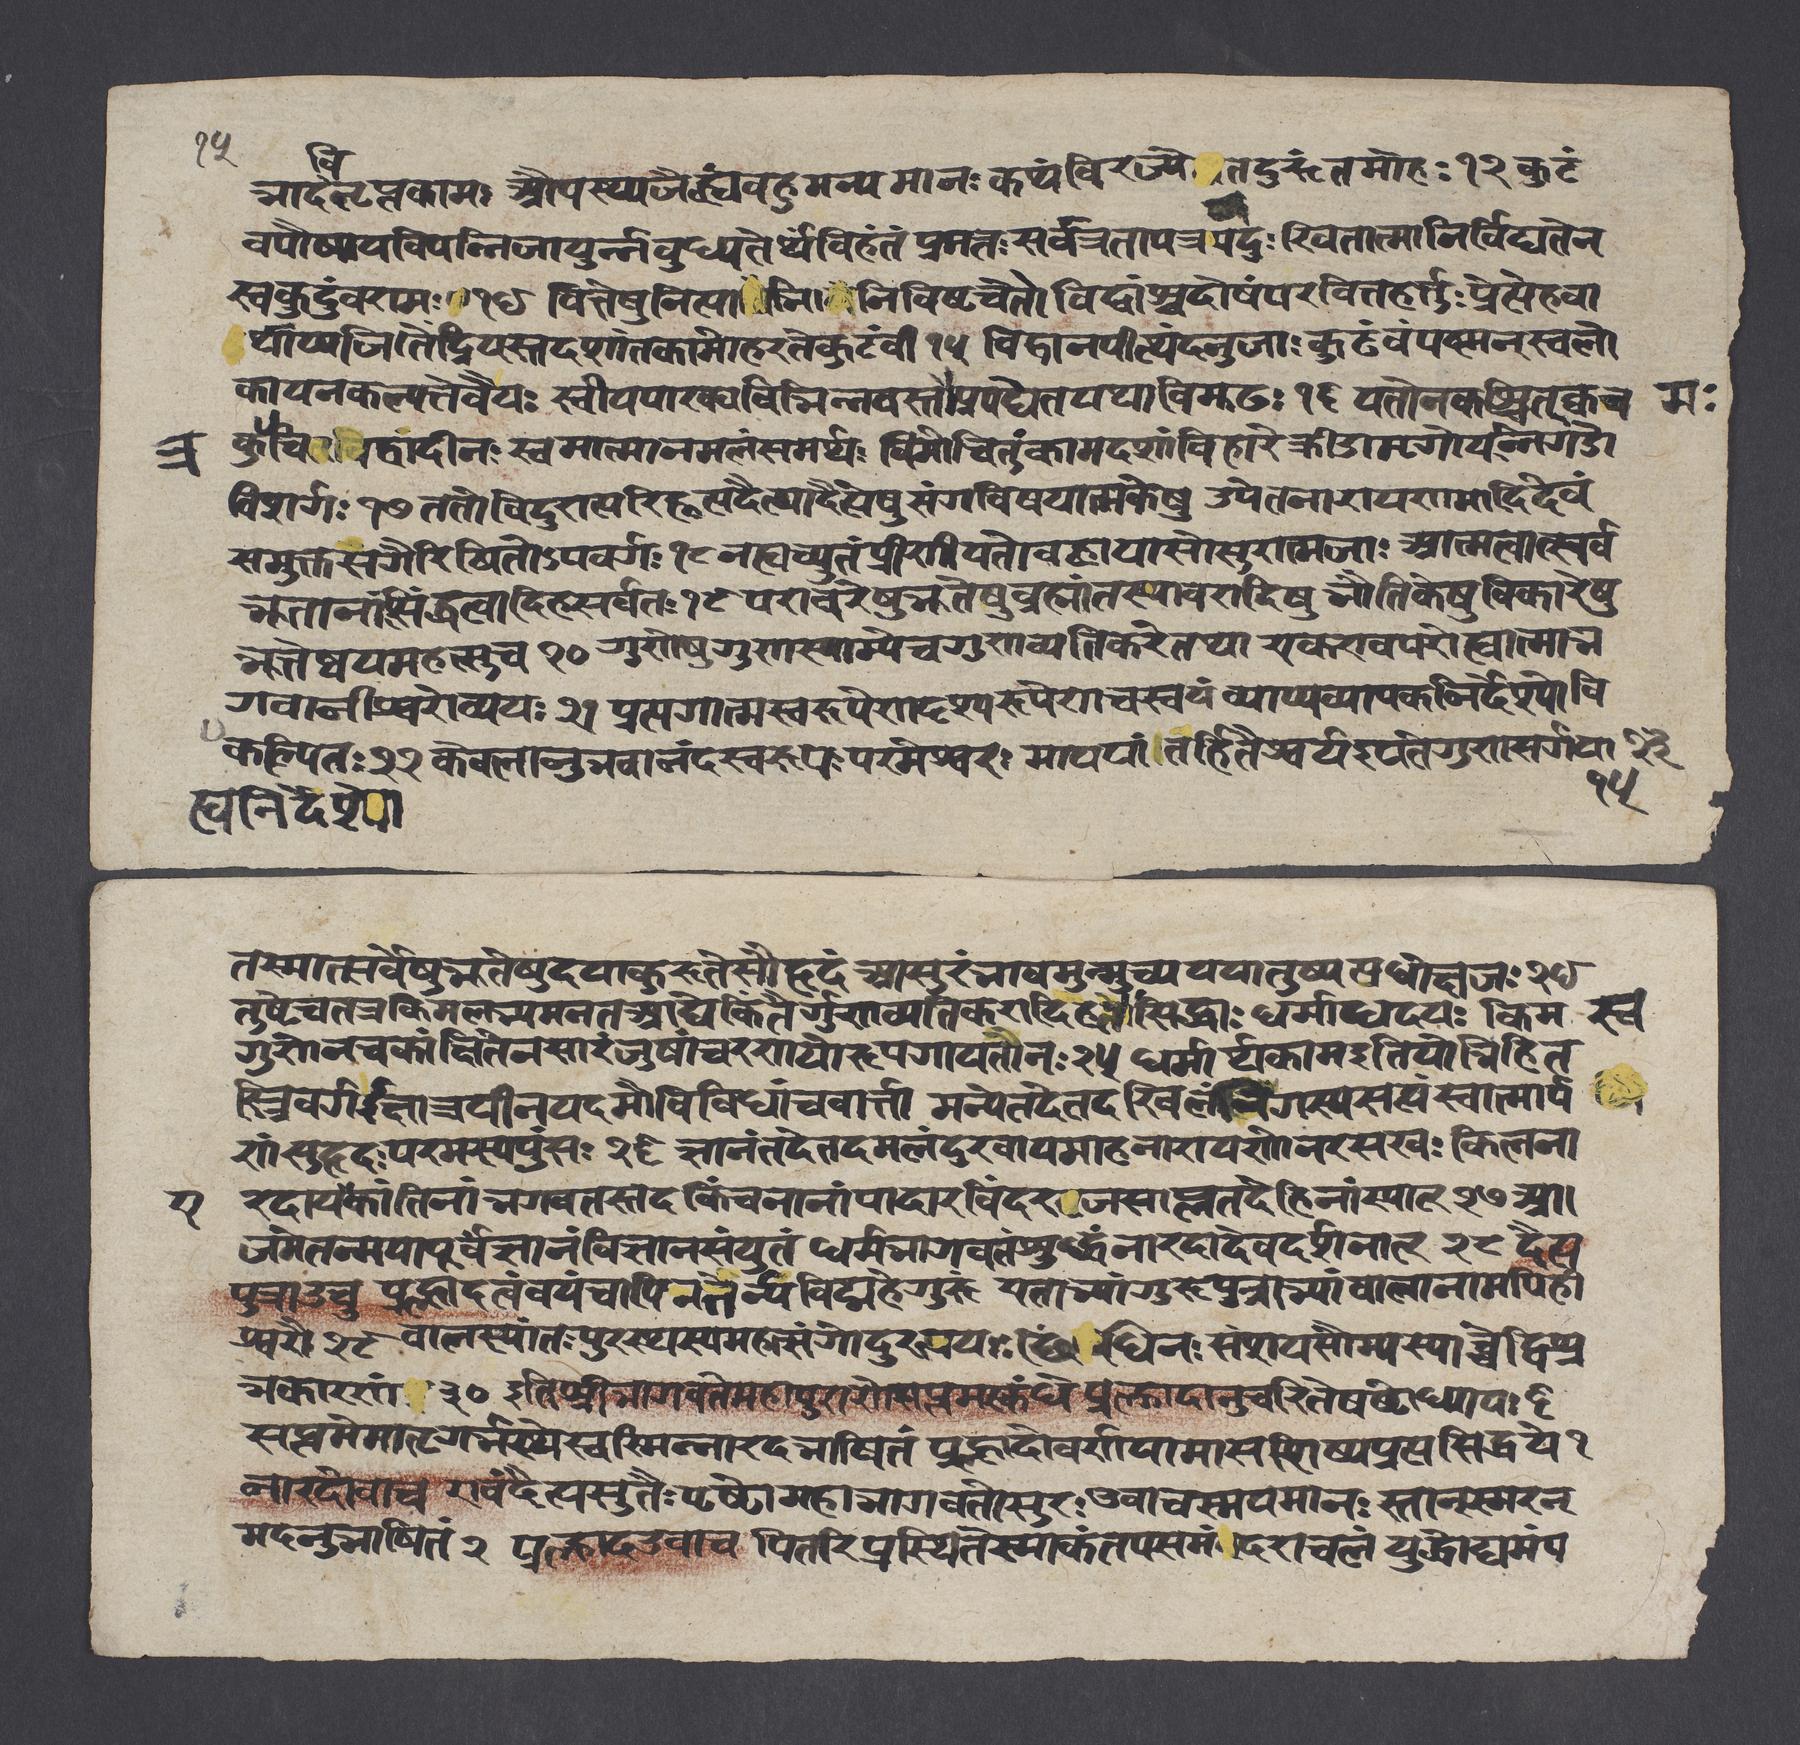 १५
वि
भादतृप्तकामः औपस्थ्यजैह्व्यंवहुमन्यमानः कथंविरज्ये तदुरंतमोहः १३ कुटं
वपोषायवियन्निजायुर्न्नवुध्यतेर्थंविहतं प्रमत्तः सर्वत्रतापत्रयदुःखितात्मानिर्विद्यतेन
स्वकुटुंवरामः १४ वित्तेषुनित्या भि निविष्टचेता विद्वांश्चदोषंपरवित्तहर्त्तुः प्रेत्येहवा
थाप्यजितेंद्रियस्तदशांतकामोहरतेकुटंवी १५ विद्वानपीत्थंदनुजाः कुटंवंपुष्मन्स्वलो
कायनकल्पतेवैयः स्वीयपारक्यविभिन्नवस्तौप्रपद्येतयथाविमूढः १६ यतोनकश्चित्क्वच मः
त्र कुत्रचि द्वादीनः स्वमात्मानमलंसमर्थः विमोचितुंकामदृशांविहारेक्रीडामृगोयन्निगडो
विशर्गः १७ ततोविदुरात्परिहृत्यदैत्यादैत्येषुसंगंविषयात्मकेषु उपेतनारायणमादिदेवं
समुक्तसंगैरिषितोऽपवर्गः १८ नह्यच्युतंप्रीणयतोवह्वायासोसुरात्मजाः आत्मत्वात्सर्व
भूतानांसिद्धत्वादिहसर्वतः १९ परावरेषुभूतेषुब्रह्मांतस्थावरादिषु भौतिकेषुविकारेषु
भूतेष्वथमहत्सुच २० गुणेषुगुणसाम्येचगुणव्यतिकरेतथा एकएवपरोह्यात्माभ
गवानीश्वरोव्ययः २१ प्रत्यगात्मस्वरूपेणदृश्यरूपेणचस्वयं व्याप्यव्यापकनिर्देश्योवि
कल्पितः २२ केवलानुभवानंदस्वरूपः परमेश्वरः माययां तर्हितैश्वर्यईयतेगुणसर्गया २३
ह्यनिर्देश्यो
१५
तस्मात्सर्वेषुभूतेषुदयांकुरूतसौहृदं आसुरंभावमुन्मुच्ययथातुष्यत्यधोक्षजः २४
तुष्टेचतत्रकिमलभ्यमनंतआद्येकिंतैर्गुणव्यतिकरादिह सिद्धाः धर्मादयः किम स्व
गुणेनचकांक्षितेनसारंजुषांचरणयोरूपगायतांनः २५ धर्मार्थकामइतियोभिहित
स्त्रिवर्गईक्षात्रयीनयदमौविविधाचवार्त्ता मन्येतदेतदखिलंनिगमस्यसत्यंस्वात्मार्प
णंसुहृदःपरमस्यपुंसः २६ ज्ञानंतदेतदमलंदुरवापमाहनारायणोनरसखः किलना
ए रदायकांतिनांभगवतस्तदकिंचनानांपादारविंदर जसाप्लुतदेहिनांस्यात् २७ श्रु
तमेतन्मयापूर्वंज्ञानंविज्ञानसंयुतं धर्मंभागवतंशुद्धंनारदादेवदर्शनात् २८ दैत्य
पुत्राऊचु प्रह्लादत्वंवयंचापिनर्तेन्यंविद्महेगुरुं एताभ्यांगुरूपुत्राभ्यांवालानामपिही
श्वरौ २९ वालस्यांतःपुरस्थस्यमहत्संगोदुरन्वयः छिंधिनः संशयसौम्यस्याच्चेद्विश्र
भकारणं ३० इतिश्रीभागवतेमहापुराणेसप्तमस्कंधे प्रह्लादानुचरितेषष्ठोध्यायः ६
सप्तमेमातृगर्भस्थेस्वस्मिन्नारदभाषितं प्रह्लादोवर्णयामासशिष्यप्रत्यसिद्धये १
नारदोवाच एवंदैत्यसुतैःपृष्टोमहाभागवतोसुरः उवाचस्मयमानः स्तान्स्मरन्
मदनुभाषितं २ प्रल्हादउवाच पितरिप्रस्थितेस्माकंतपसेमं दराचलं युद्धोद्यमंप